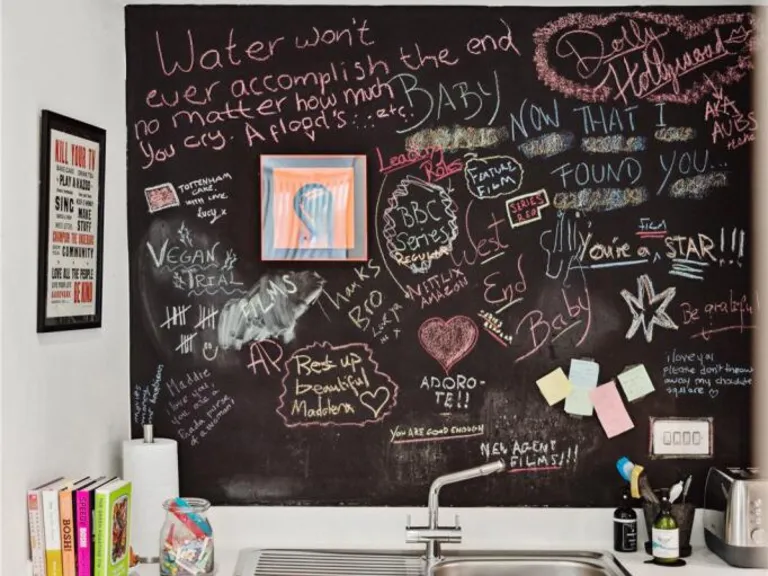 Water won't
ever accomplish the end
no matter how much
you cry. A flood's ... etc.
Dolly
Hollywood
AKA
AUBS
BABY
NOW THAT I
FOUND YOU...
Leading
Roles
FEATURE
FILM
BBC
Series
REGULAR
SERIES
NETFLIX
AMAZON
West
End
Baby
FILM
You're a STAR!!!
Be grateful
TOTTENHAM
CAKE.
WITH LOVE.
Lucy x
VEGAN
TRIAL
FILMS
Thanks
Bro
AP
Rest up
beautiful
Maddena
ADORO-
TE!!
YOU ARE GOOD ENOUGH
NEW AGENT
FILMS!!!
i love you
please don't throw
away my
square
Maddie
I love you,
you are a
of a woman
KILL YOUR TV
PLAY A KAZOO
SING
MAKE
STUFF
COMMUNITY
LOVE ALL THE PEOPLE
BE KIND
BOSH!
SPEEDY